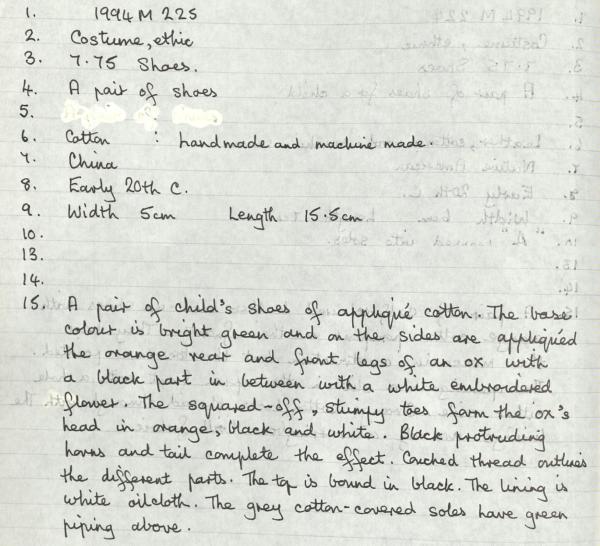 1. 1994 M 225
2. Costume, ethic
3. 7.75 Shoes.
4. A pair of shoes
5.
6. Cotton : handmade and machine made.
7. China
8. Early 20th C.
9. Width 5cm Length 15.5cm
10.
13.
14.
15. A pair of child's shoes of appliqué cotton. The base
colour is bright green and on the sides are appliquéd
the orange rear and front legs of an ox with
a black part in between with a white embroidered
flower. The squared-off, stumpy toes form the ox's
head in orange, black and white. Black protruding
horns and tail complete the effect. Couched thread outlines
the different parts. The top is bound in black. The lining is
white oilcloth. The grey cotton-covered soles have green
piping above.